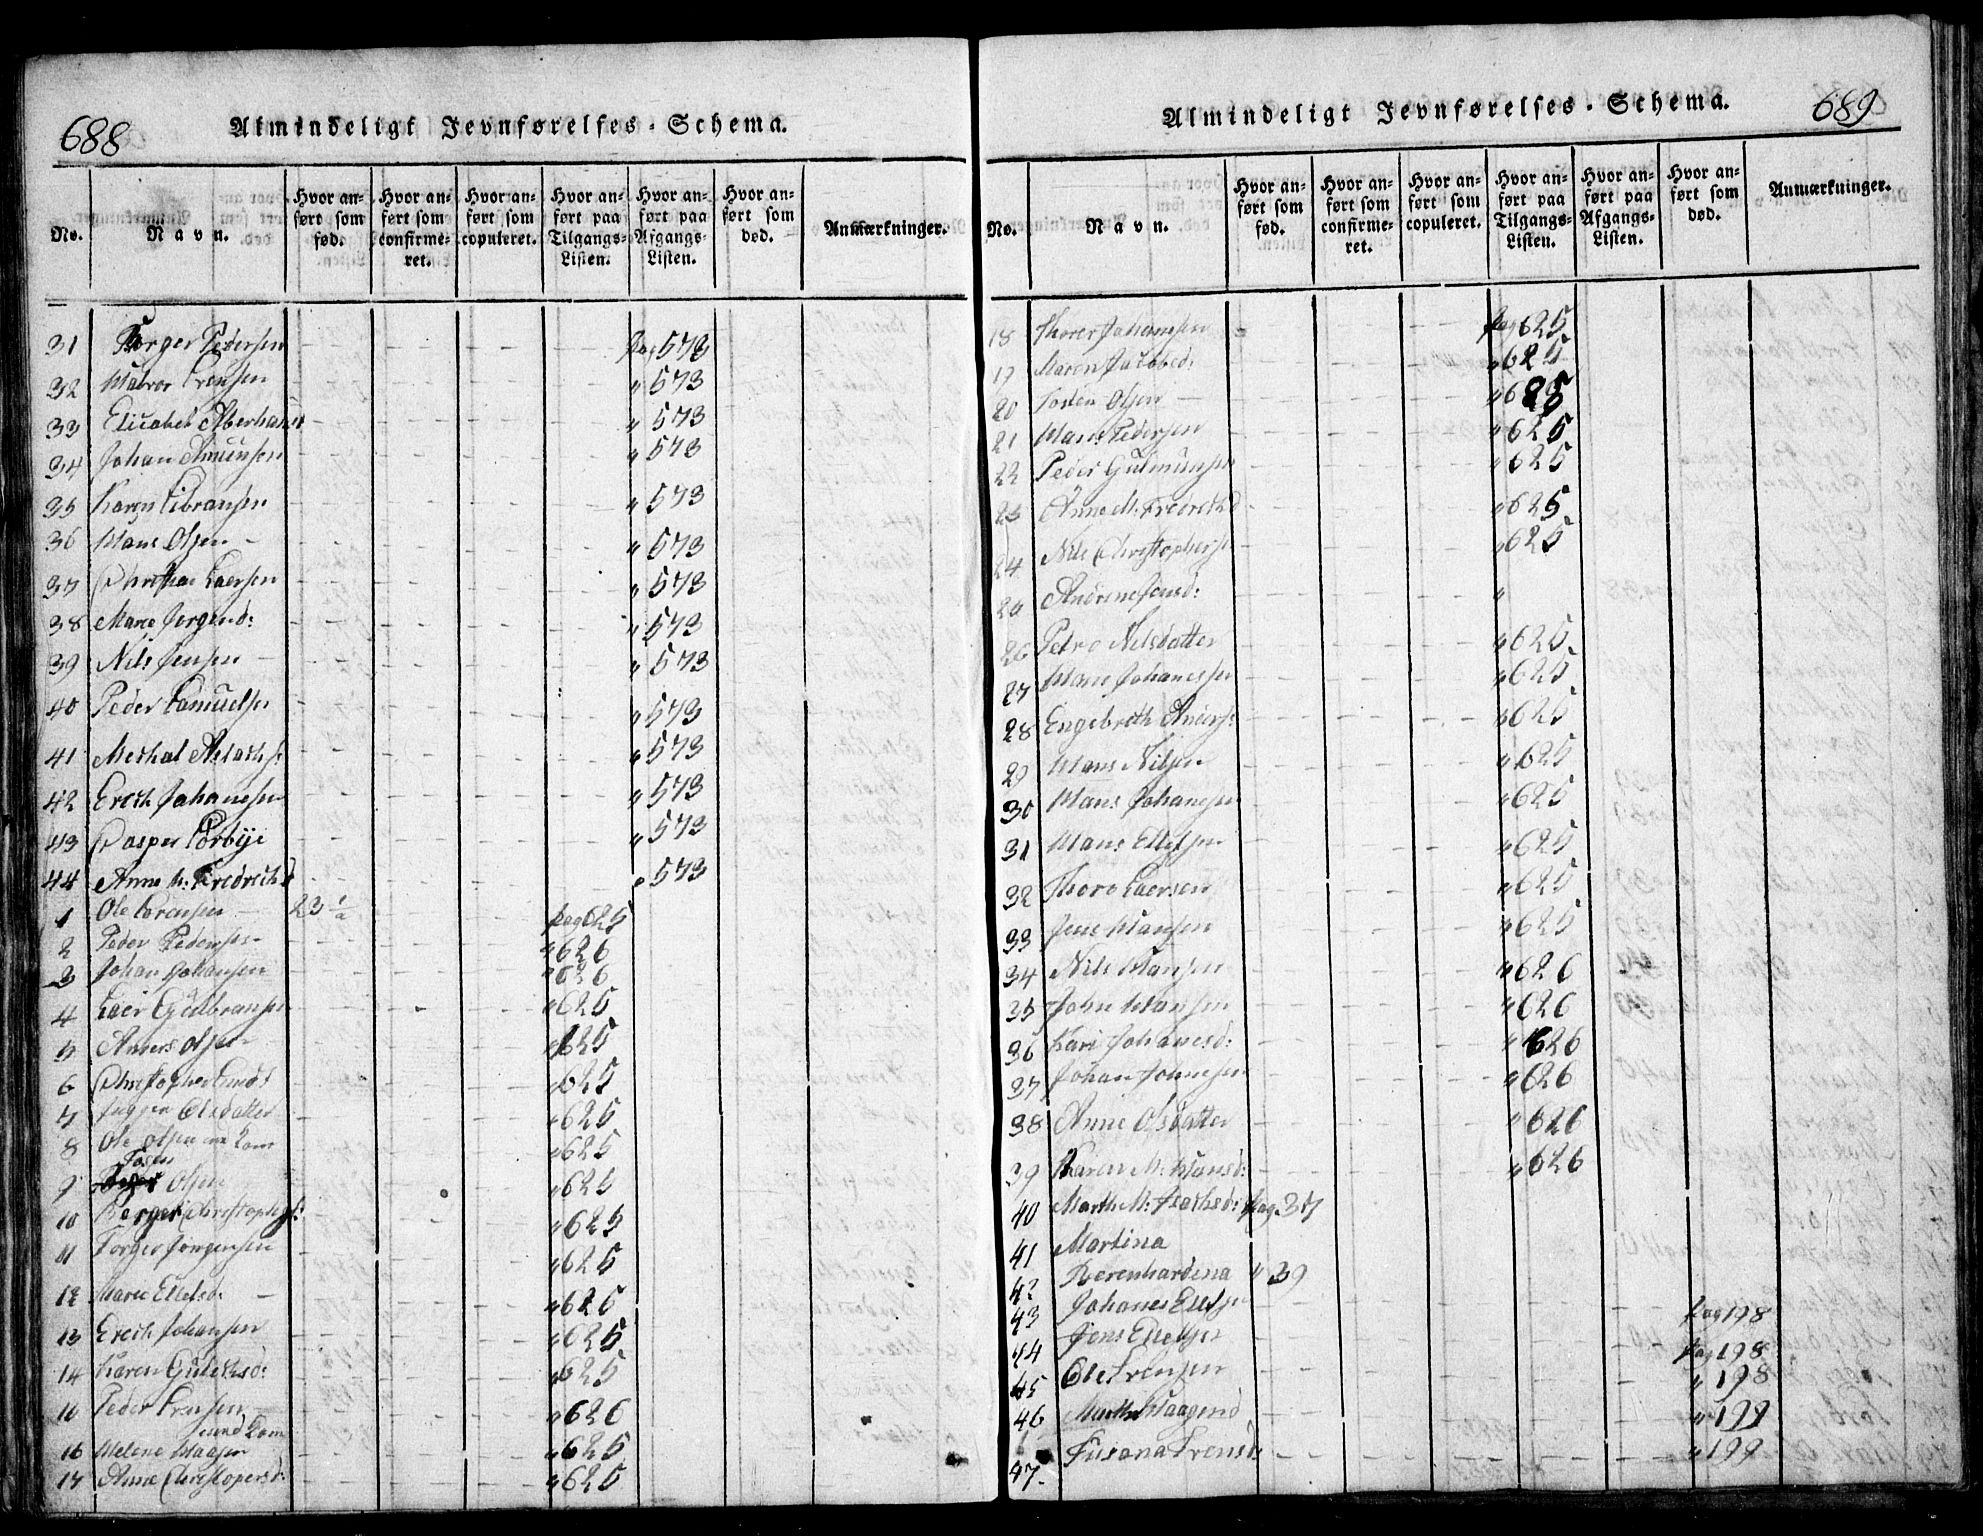 688 Almindeligt Jevnførelses-Schema.
No. Navn. Hvor anført som fød. Hvor anført som confirmeret. Hvor anført som copuleret. Hvor anført paa Tilgangs-Listen. Hvor anført paa Afgangs-Listen. Hvor anført som død. Anmærkninger.
31 Torger Pedersen pag 573
32 Halvor Ersen " 573
33 Elisabet Aberhams " 573
34 Johan Amunsen " 573
35 Karen Gibransen " 573
36 Hans Olsen " 573
37 Christian Laersen " 573
38 Maree Jorgensd: " 573
39 Nils Jensen " 573
40 Peder Samuelsen " 573
41 Methal Aslachs: " 573
42 Erich Johanesen " 573
43 Casper Corbye " 573
44 Anne M: Fredrichsd " 573
1 Ole Sorensen 23 1/a pag 625
2 Peder Pedersen " 626
3 Johan Johansen " 626
4 Laers Gulbransen " 625
5 Anders Olsen " 625
6 Christopher " 625
7 Olsdatter " 625
8 Ole Olsen " 625
9 Tosten Olsen " 625
10 Berger Christophers: " 625
11 Torger Jorgensen " 625
12 Maree Ellefsd: " 625
13 Erich Johansen " 625
14 Karen Gulichsd: " 625
15 Peder Ersen " 626
16 Helene Haagen " 625
17 Anne Christopersd: " 625
689 Almindeligt Jevnførelses-Schema.
No. Navn. Hvor anført som fød. Hvor anført som confirmeret. Hvor anført som copuleret. Hvor anført paa Tilgangs-Listen. Hvor anført paa Afgangs-Listen. Hvor anført som død. Anmærkninger.
18 Thorer Johannesen pag 625
19 Maren Jacobsd: " 625
20 Tosten Olsen " 625
21 Hans Pedersen " 625
22 Peder Gulmunsen " 625
23 Anne M: Fredrichsd " 625
24 Nils Christophersen " 625
25 Andrine Jensd: "
26 Petro Nilsdatter " 625
27 Hans Johanessen " 625
28 Engebreth Anders: " 625
29 Hans Nilsen " 625
30 Hans Johanesen " 625
31 Hans Ellefsen " 625
32 Thoro Laersen " 625
33 Jens Hansen " 625
34 Nils Hansen " 626
35 John Hansen " 626
36 Kari Johanesd: " 626
37 Johan Johnesen " 626
38 Anne Olsdatter " 626
39 Karen M: Hansd: " 626
40 Marth M: Isachsd: pag 37
41 Martina
42 Berenhardina " 39
43 Johanes Ellefsen pag 198
44 Jens Ellefsen pag 198
45 Ole Ersen " 198
46 Marthe Haagend " 199
47 Susana Sørensd: " 199